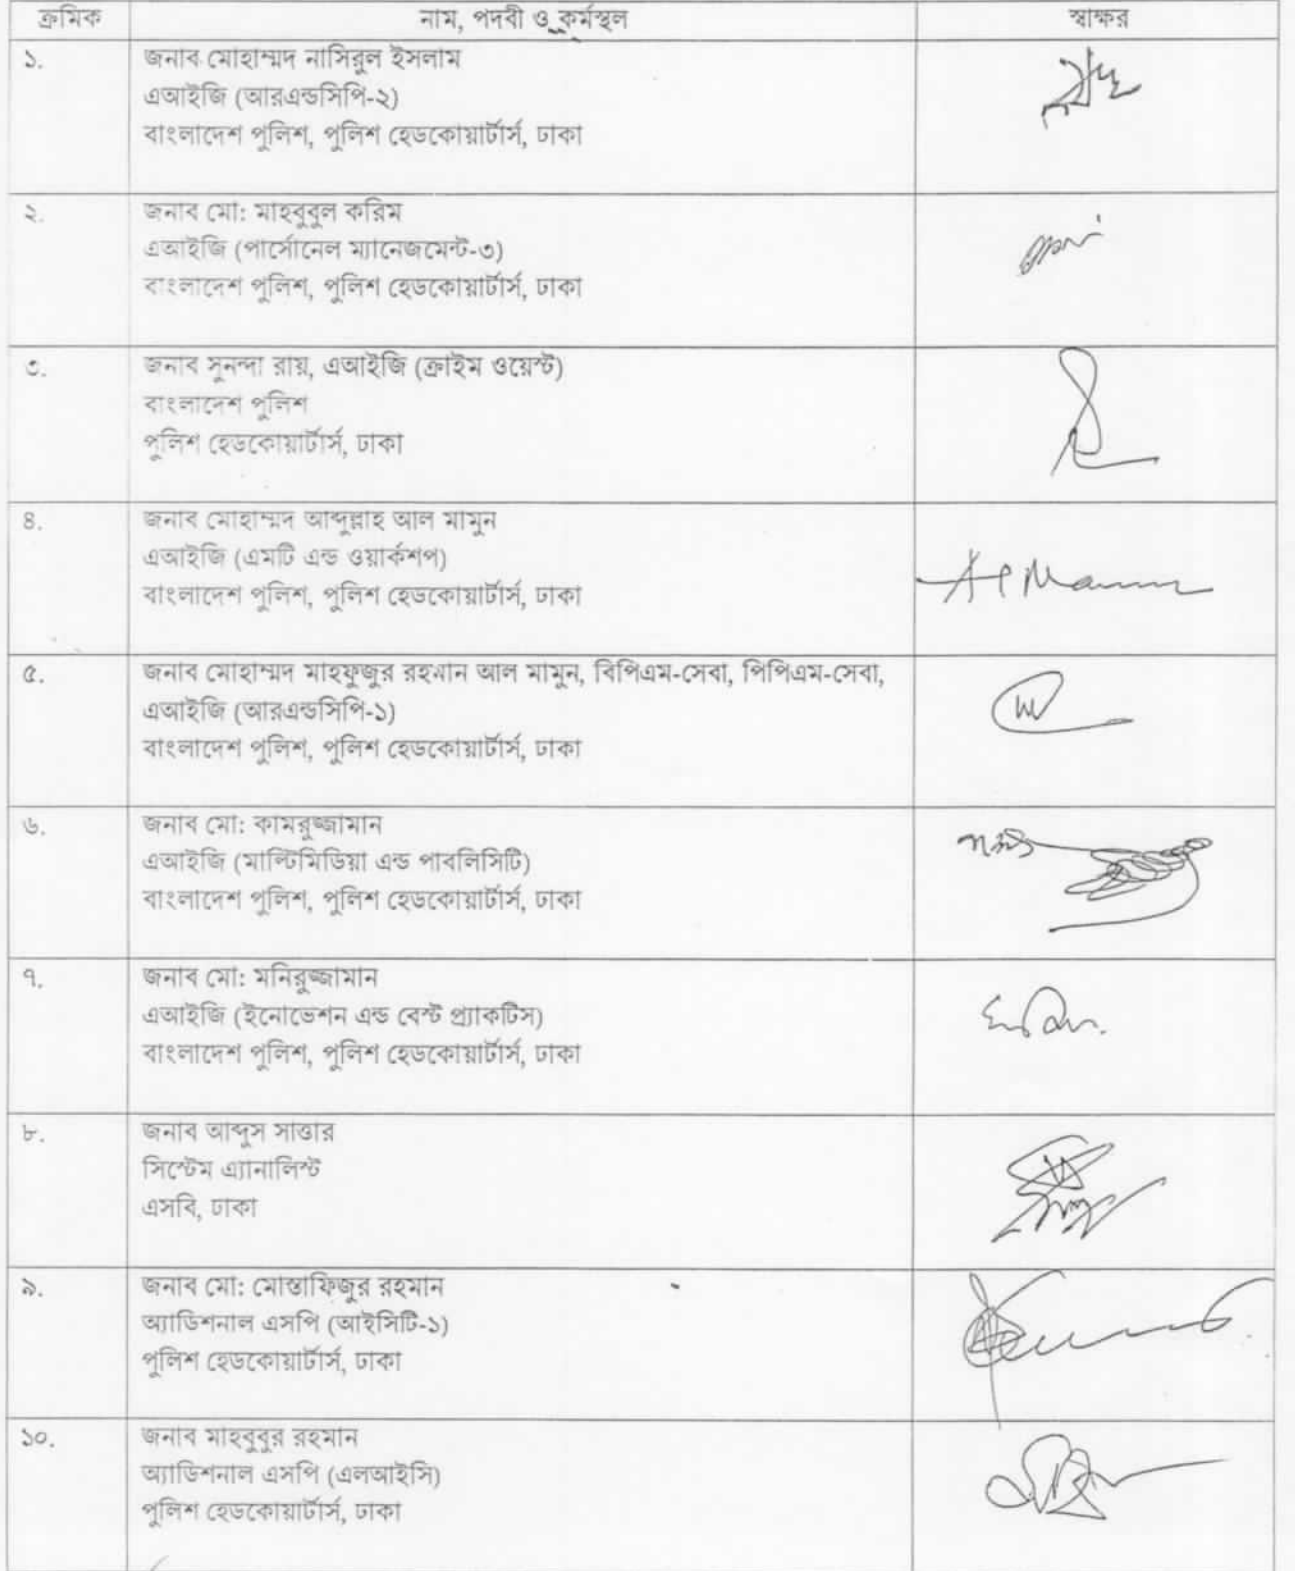 ক্রমিক নাম, পদবী ও কর্মস্থল স্বাক্ষর
১. জনাব মোহাম্মদ নাসিরুল ইসলাম
এআইজি (আরএন্ডসিপি-২)
বাংলাদেশ পুলিশ, পুলিশ হেডকোয়ার্টার্স, ঢাকা
২. জনাব মো: মাহবুবুল করিম
এআইজি (পার্সোনেল ম্যানেজমেন্ট-৩)
বাংলাদেশ পুলিশ, পুলিশ হেডকোয়ার্টার্স, ঢাকা
৩. জনাব সুনন্দা রায়, এআইজি (ক্রাইম ওয়েস্ট)
বাংলাদেশ পুলিশ
পুলিশ হেডকোয়ার্টার্স, ঢাকা
৪. জনাব মোহাম্মদ আব্দুল্লাহ আল মামুন
এআইজি (এমটি এন্ড ওয়ার্কশপ)
বাংলাদেশ পুলিশ, পুলিশ হেডকোয়ার্টার্স, ঢাকা
৫. জনাব মোহাম্মদ মাহফুজুর রহমান আল মামুন, বিপিএম-সেবা, পিপিএম-সেবা,
এআইজি (আরএন্ডসিপি-১)
বাংলাদেশ পুলিশ, পুলিশ হেডকোয়ার্টার্স, ঢাকা
৬. জনাব মো: কামরুজ্জামান
এআইজি (মাল্টিমিডিয়া এন্ড পাবলিসিটি)
বাংলাদেশ পুলিশ, পুলিশ হেডকোয়ার্টার্স, ঢাকা
৭. জনাব মো: মনিরুজ্জামান
এআইজি (ইনোভেশন এন্ড বেস্ট প্র্যাকটিস)
বাংলাদেশ পুলিশ, পুলিশ হেডকোয়ার্টার্স, ঢাকা
৮. জনাব আব্দুস সাত্তার
সিস্টেম এ্যানালিস্ট
এসবি, ঢাকা
৯. জনাব মো: মোস্তাফিজুর রহমান
অ্যাডিশনাল এসপি (আইসিটি-১)
পুলিশ হেডকোয়ার্টার্স, ঢাকা
১০. জনাব মাহবুবুর রহমান
অ্যাডিশনাল এসপি (এলআইসি)
পুলিশ হেডকোয়ার্টার্স, ঢাকা